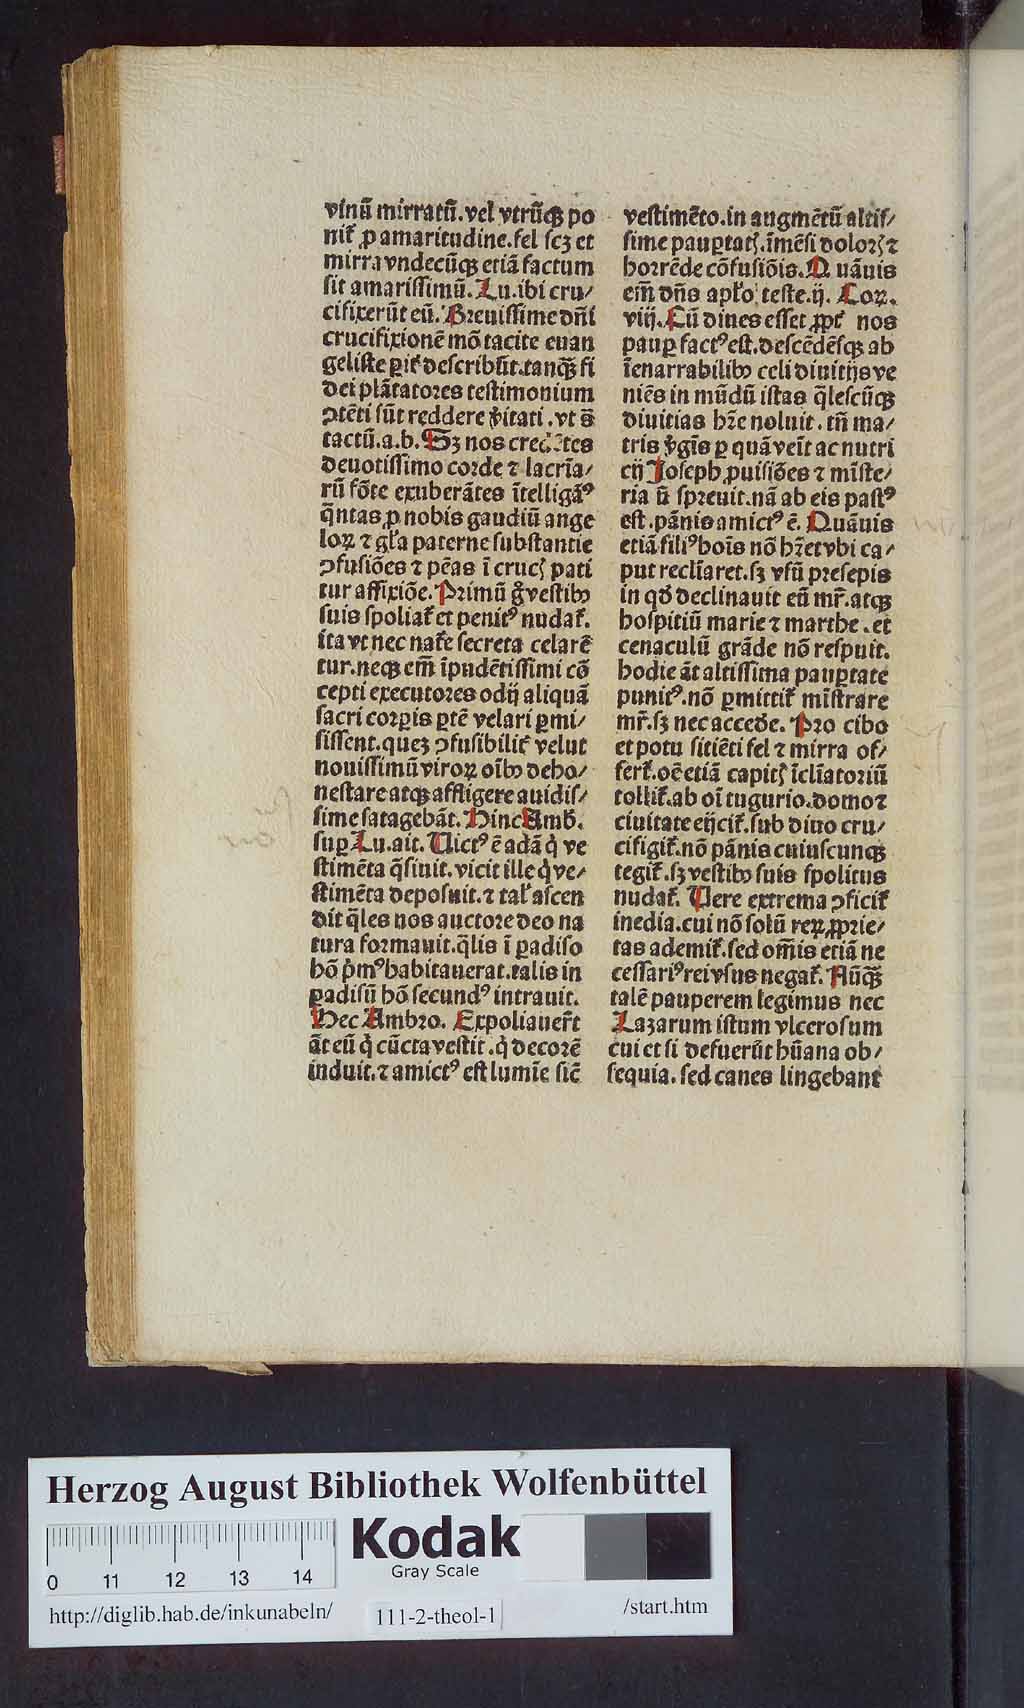 vinū mirratū. vel vtrūqꝫ po
nit᷑ ꝓ amaritudine. fel scꝫ et
mirra vndecūqꝫ etiā factum
sit amarissimū. Lu. ibi cru/
cifixerūt eū. Breuissime dn̄i
crucifixionē mō tacite euan
geliste ꝑit᷑ describūt. tanqꝫ̄ fi
dei plātatores testimonium
ꝯtēti sūt reddere v̓itati. vt s̄
tactū. a. b. Sꝫ nos credētes
deuotissimo corde ⁊ lacrīa/
rū fōte exuberātes ītelligāꝰ
q̄ntas ꝓ nobis gaudiū ange
loꝝ ⁊ gl̓a paterne substantie
ꝯfusiōes ⁊ pēas ī crucꝭ pati
tur affixiōe. Primū g̊ vestibꝫ
suis spoliat᷑ et penitꝰ nudat᷑.
īta vt nec nat᷑e secreta celarē
tur. neqꝫ em̄ īpudētissimi cō
cepti executores odij aliquā
sacri corꝑis ꝑtē velari ꝑmi/
sissent. queꝫ ꝯfusibilit᷑ velut
nouissimū viroꝝ oībꝫ deho/
nestare atqꝫ affligere auidis/
sime satagebāt. Hinc Amb̓.
suꝑ Lu. ait. Uictꝰ ē adā q̇ ve
stimēta q̄siuit. vicit ille q̇ ve/
stimēta deposuit. ⁊ tal̓ ascen
dit q̄les nos auctore deo na
tura formauit. q̄lis ī ꝑadiso
hō p̓mꝰ habitauerat. talis in
ꝑadisū hō secundꝰ intrauit.
Hec Ambro. Expoliauer̄t
āt eū q̇ cūcta vestit. q̇ decorē
induit. ⁊ amictꝰ est lumīe sic̄
vestimēto. in augmētū altis/
sime pauꝑtatꝭ. īmēsi dolorꝭ ⁊
horrēde cōfusiōis. Quāuis
em̄ dn̄s apl̓o teste. ij. Coꝝ.
viij. Cū diues esset ꝓpt᷑ nos
pauꝑ factꝰ est. descēdēsqꝫ ab
īenarrabilibꝫ celi diuitijs ve
niēs in mūdū istas q̄lescūqꝫ
diuitias hr̄e noluit. tn̄ ma/
tris v̓gīs ꝑ quā veīt ac nutri
cij Joseph ꝓuisiōes ⁊ mīste/
ria ū spreuit. nā ab eis pastꝰ
est. pānis amictꝰ ē. Quāuis
etiā filiꝰ hoīs nō hr̄et vbi ca/
put reclīaret. sꝫ vsū presepis
in qd̓ declinauit eū mr̄. atqꝫ
hospitiū marie ⁊ marthe. et
cenaculū grāde nō respuit.
hodie āt altissima pauꝑtate
punitꝰ. nō ꝑmittit᷑ mīstrare
mr̄. sꝫ nec accede. Pro cibo
et potu sitiēti fel ⁊ mirra of/
fert᷑. oē etiā capitꝭ īclīatoriū
tollit᷑. ab oī tugurio. domo ⁊
ciuitate eijcit᷑. sub diuo cru/
cifigit᷑. nō pānis cuiuscunqꝫ
tegit᷑. sꝫ vestibꝫ suis spolitus
nudat᷑. Vere extrema ꝯficit᷑
inedia. cui nō solū reꝝ ꝓprie/
tas ademit᷑. sed om̄is etiā ne
cessariꝰ rei vsus negat᷑. Nūqꝫ̄
talē pauperem legimus nec
Lazarum istum vlcerosum
cui et si defuerūt hūana ob/
sequia. sed canes lingebant
Herzog August Bibliothek Wolfenbüttel
0 11 12 13 14
Kodak
Gray Scale
http://diglib.hab.de/inkunabeln/
111-2-theol-1
/start.htm